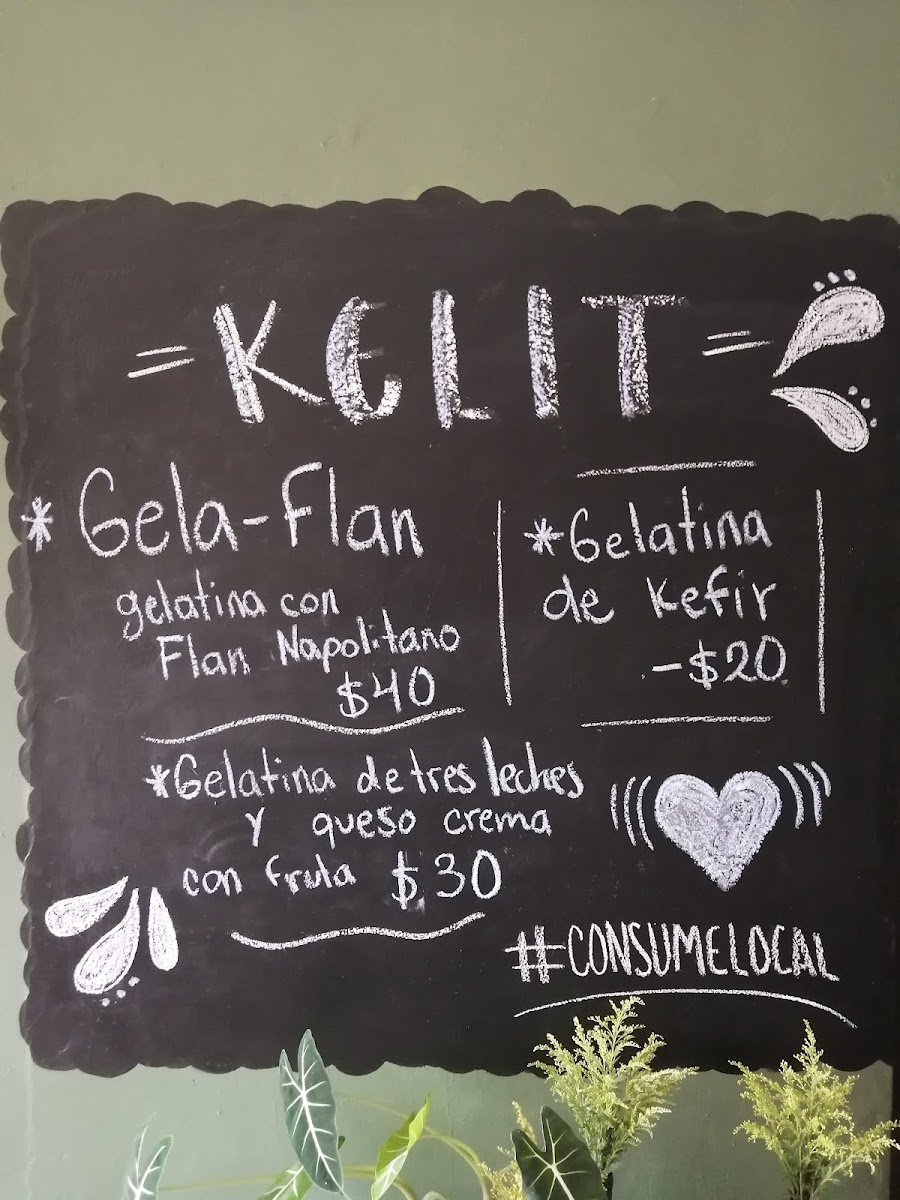 = KELIT =
* Gela-Flan
gelatina con
Flan Napolitano
$40
*Gelatina
de Kefir
-$20
*Gelatina de tres leches
y queso crema
con fruta $30
#CONSUMELOCAL